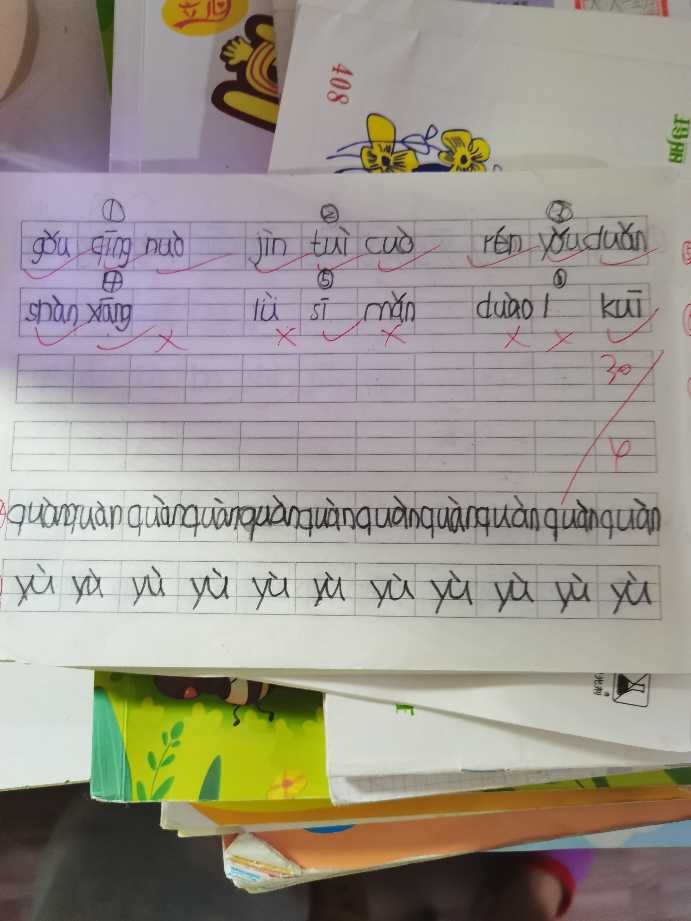 408
① ② ③
gǒu qīng nuò jìn tuì cuò rén yǒu duǎn
④ ⑤ ⑥
shàn xiāng lù sī mǎn duào l kuī
30
4
quàn quàn quàn quàn quàn quàn quàn quàn quàn quàn quàn
yù yù yù yù yù yù yù yù yù yù yù